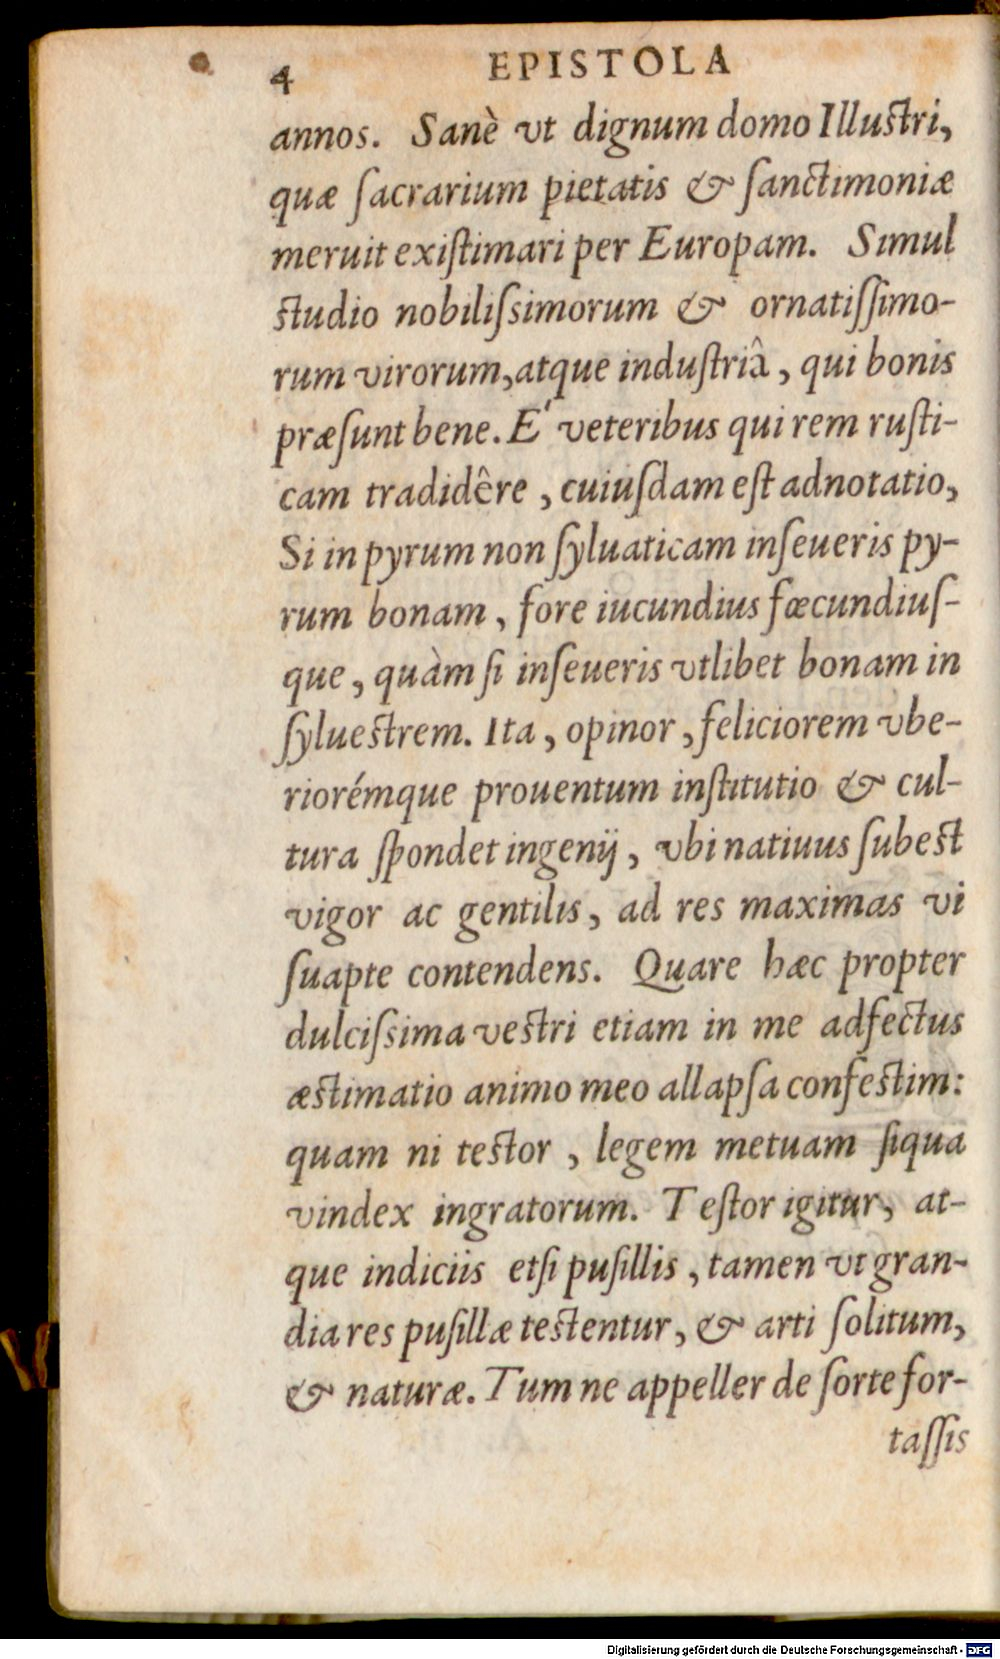 4 EPISTOLA
annos. Sanè vt dignum domo Illustri,
quæ ſacrarium pietatis & ſanctimoniæ
meruit exiſtimari per Europam. Simul
studio nobiliſsimorum & ornatiſſimo-
rum virorum, atque induſtriâ, qui bonis
præſunt bene. E' veteribus qui rem ruſti-
cam tradidêre, cuiuſdam eſt adnotatio,
Si in pyrum non ſyluaticam inſeueris py-
rum bonam, fore iucundius fœcundiuſ-
que, quàm ſi inſeueris vtlibet bonam in
ſyluestrem. Ita, opinor, feliciorem vbe-
riorémque prouentum inſtitutio & cul-
tura ſpondet ingenij, vbi natiuus ſubest
vigor ac gentilis, ad res maximas vi
ſuapte contendens. Quare hæc propter
dulciſsima vestri etiam in me adfectus
æstimatio animo meo allapſa confestim:
quam ni testor, legem metuam ſiqua
vindex ingratorum. Teſtor igitur, at-
que indiciis etſi puſillis, tamen vt gran-
dia res puſillæ testentur, & arti ſolitum,
& naturæ. Tum ne appeller de ſorte for-
taſſis
Digitalisierung gefördert durch die Deutsche Forschungsgemeinschaft - DFG